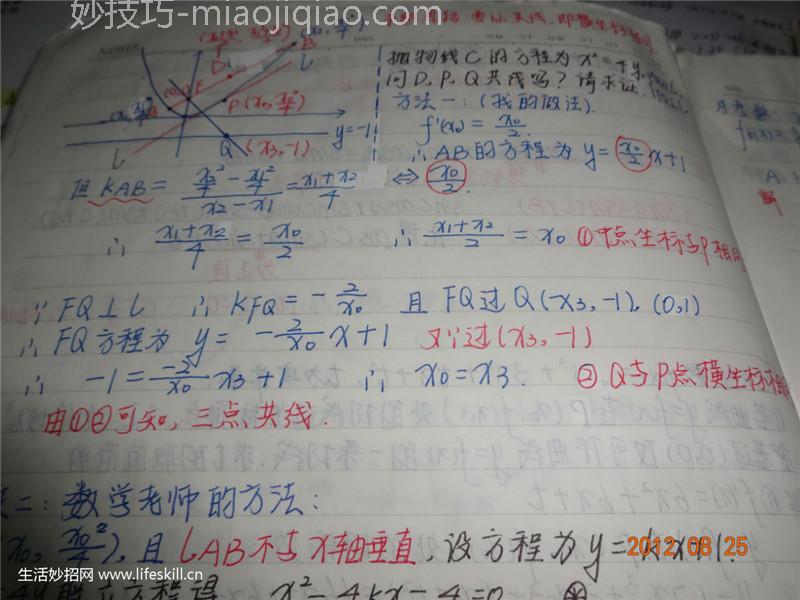 妙技巧-miaojiqiao.com
NOTES
抛物线C的方程为x²=4y.
问D.P.Q共线吗?请求证.
方法一:(我的做法).
f'(x₀)=x₀/2.
∴AB的方程为y=x₀/2x+1
A B D F P(x₀, x₀²/4) (0,1)
y=-1
L Q(x₃,-1)
但KAB=(x₂²/4-x₁²/4)/(x₂-x₁)=(x₁+x₂)/4⇔x₀/2.
∴(x₁+x₂)/4=x₀/2 ∴(x₁+x₂)/2=x₀ ①中点坐标与P相同
∵FQ⊥L ∴KFQ=-2/x₀ 且FQ过Q(-x₃,-1),(0,1)
∴FQ方程为y=-2/x₀x+1 又∵过(x₃,-1)
∴-1=-2/x₀x₃+1 ∴x₀=x₃. ②Q与P点横坐标相
由①②可知,三点共线.
二:数学老师的方法:
x₀, x₀²/4),且LAB不与x轴垂直,设方程为y=kx+1.
2012 08 25
x²-4kx-4=0
生活妙招网 www.lifeskill.cn